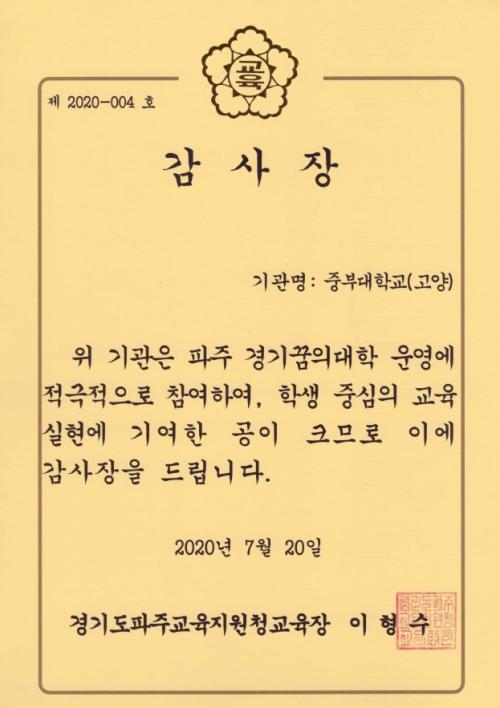 교육
제 2020-004 호
감 사 장
기관명 : 중부대학교(고양)
위 기관은 파주 경기꿈의대학 운영에
적극적으로 참여하여, 학생 중심의 교육
실현에 기여한 공이 크므로 이에
감사장을 드립니다.
2020년 7월 20일
경기도파주교육지원청교육장 이 형 수